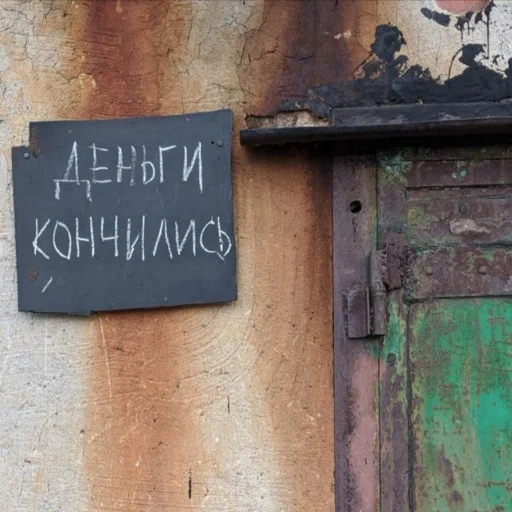 ДЕНЬГИ
КОНЧИЛИСЬ